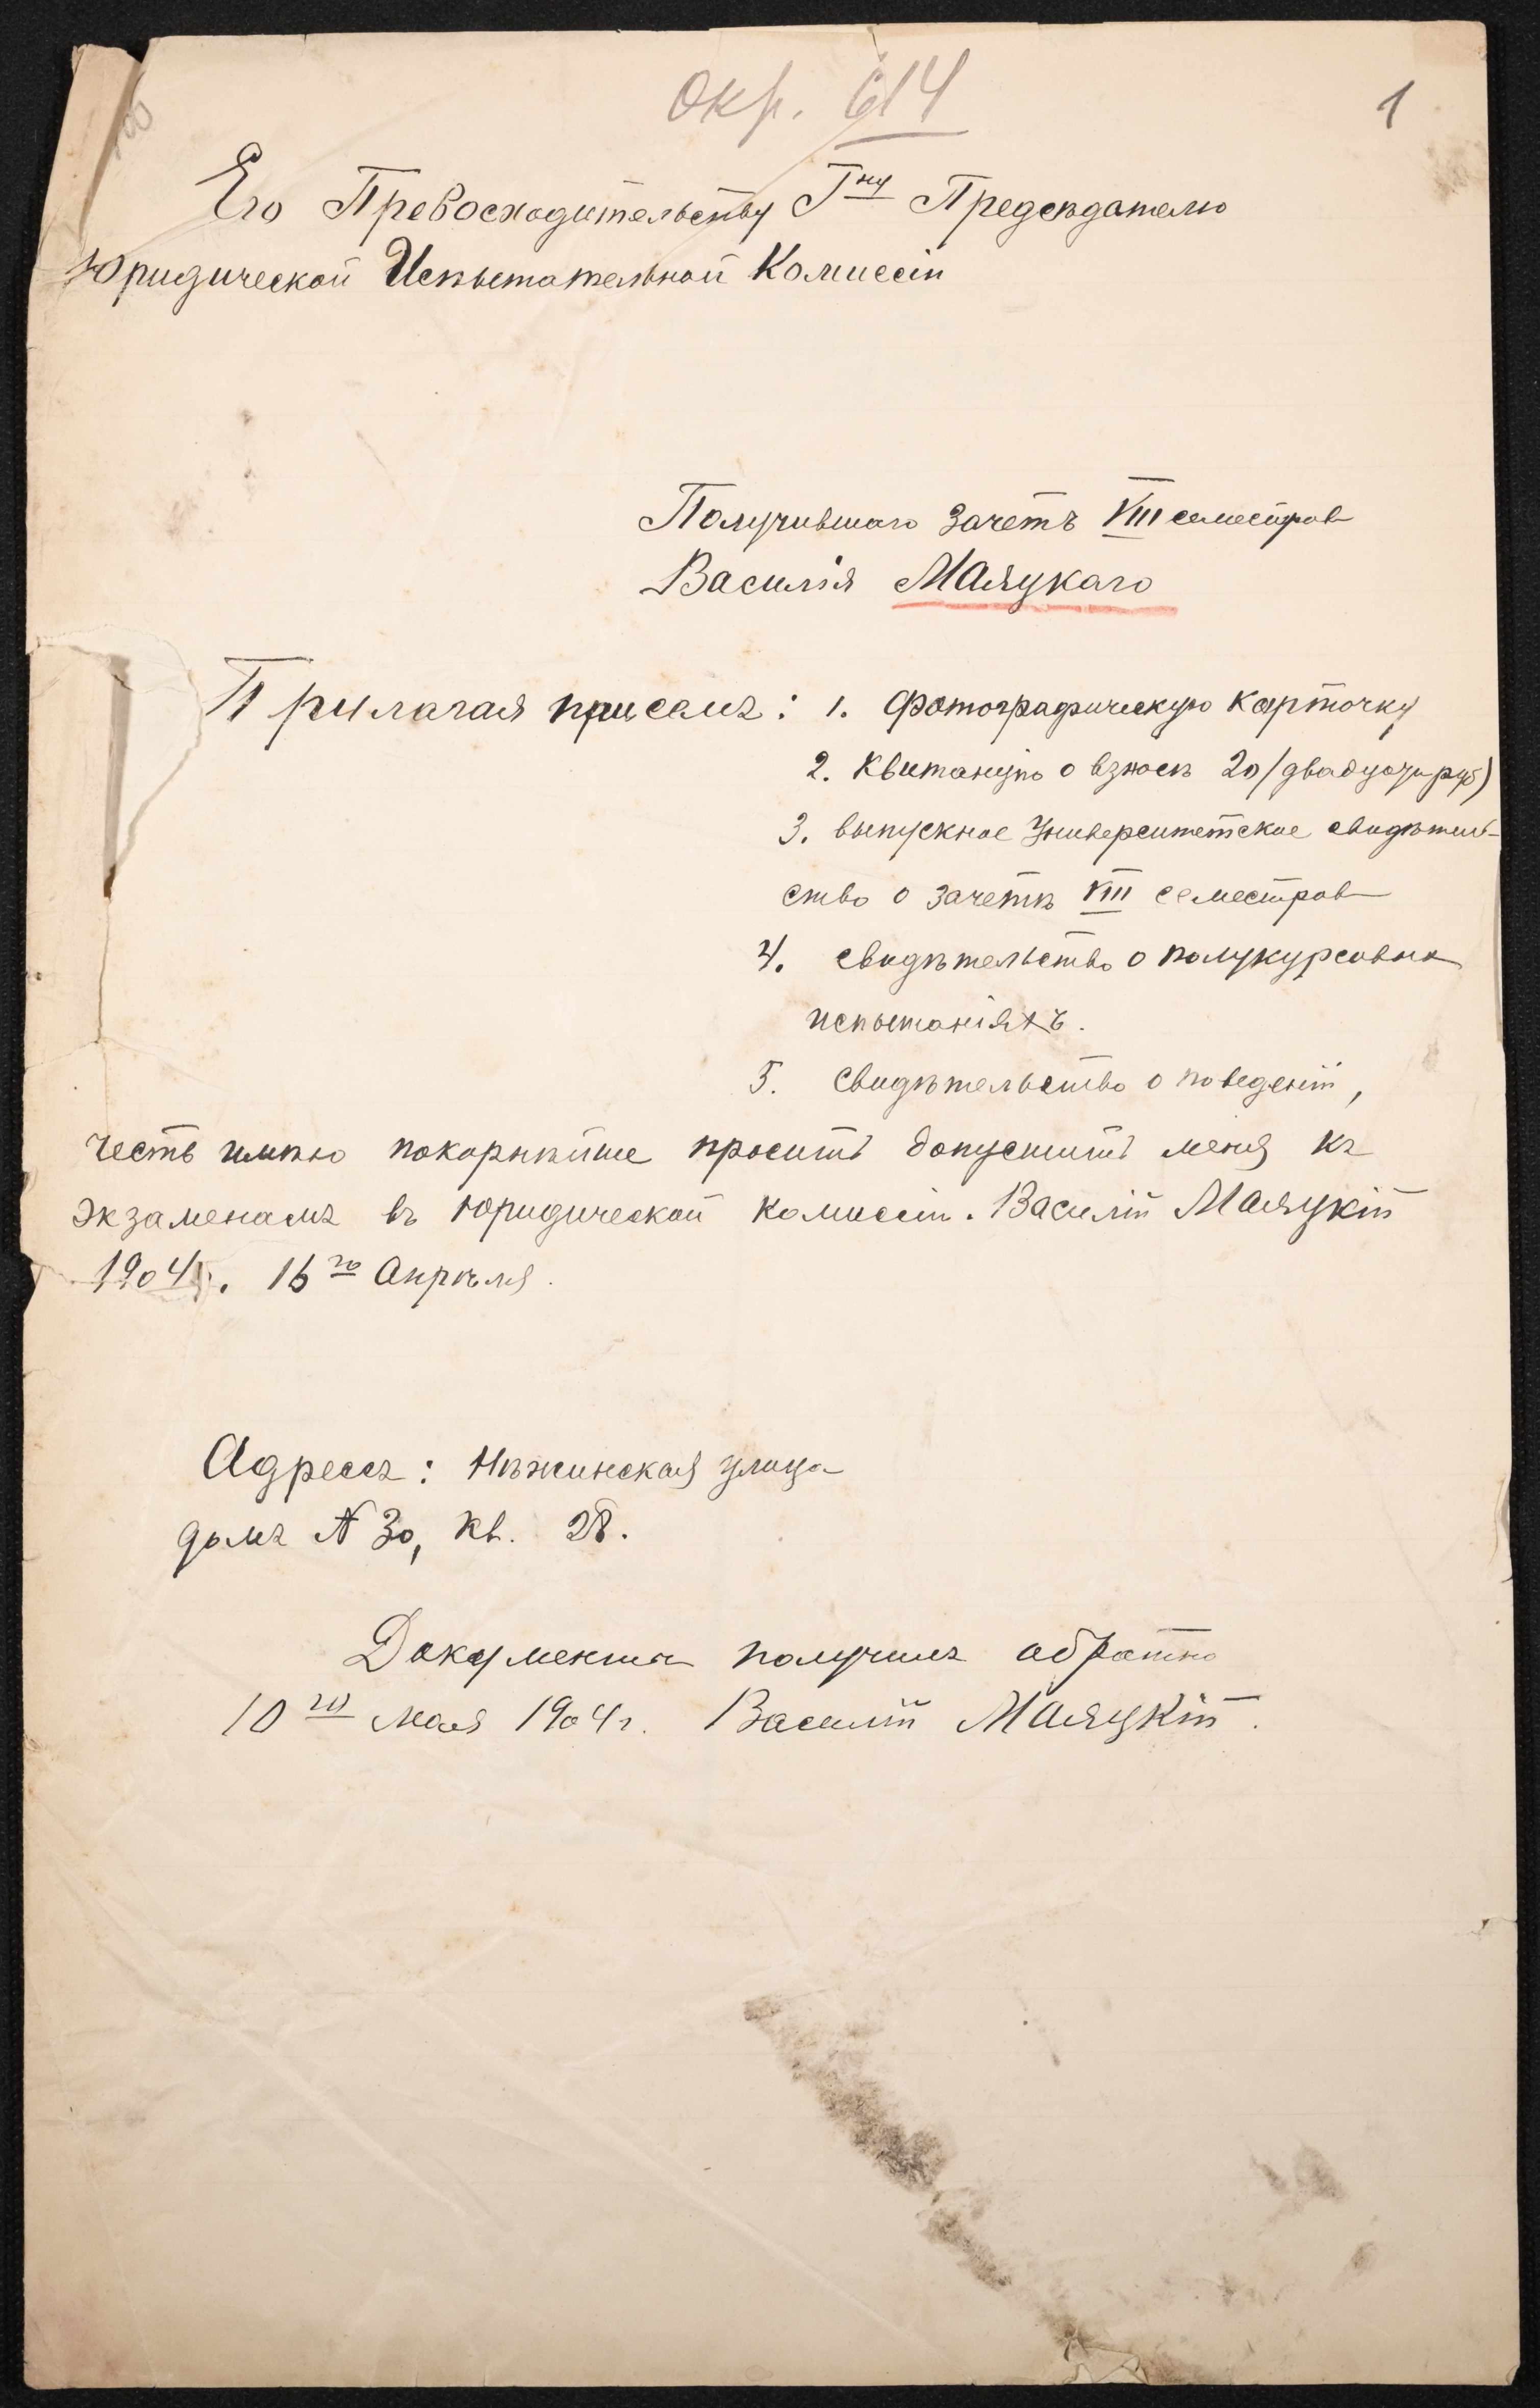 Окр. 614
1
Его Превосходительству Г-ну Предсѣдателю
Юридической Испытательной Комиссіи
Получившаго зачетъ VIII семестров
Василія Маяцкаго
Прилагая при семъ: 1. Фотографическую карточку
2. Квитанцію о взносѣ 20 (двадцати руб)
3. выпускное Университетское свидѣтель-
ство о зачетѣ VIII семестров
4. свидѣтельство о полукурсовых
испытаніяхъ.
5. Свидѣтельство о поведеніи,
честь имѣю покорнѣйше просить допустить меня къ
экзаменамъ въ юридической комиссіи. Василій Маяцкій
1904 г. 16го Апрѣля.
Адресъ: Нѣжинская улица
домъ № 30, кв. 28.
Документы получилъ обратно
10го мая 1904 г. Василій Маяцкій.